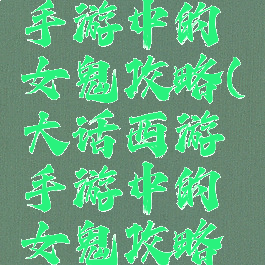 手游中的
女鬼攻略(
大话西游
手游中的
女鬼攻略